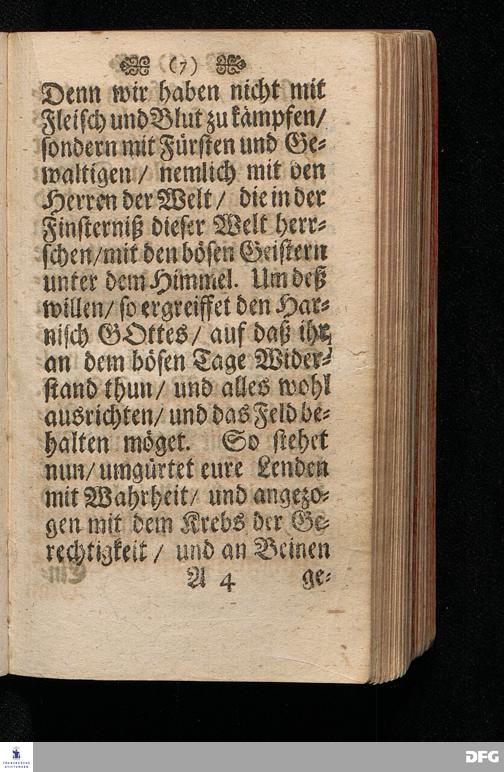 (7)
Denn wir haben nicht mit
Fleisch und Blut zu kämpfen/
sondern mit Fürsten und Ge-
waltigen/ nemlich mit den
Herren der Welt/ die in der
Finsterniß dieser Welt herr-
schen/mit den bösen Geistern
unter dem Himmel. Um deß
willen/ so ergreiffet den Har-
nisch GOttes/ auf daß ihr
an dem bösen Tage Wider-
stand thun/ und alles wohl
ausrichten/ und das Feld be-
halten möget. So stehet
nun/ umgürtet eure Lenden
mit Wahrheit/ und angezo-
gen mit dem Krebs der Ge-
rechtigkeit/ und an Beinen
A 4 ge-
FRANCKESCHE
STIFTUNGEN
DFG